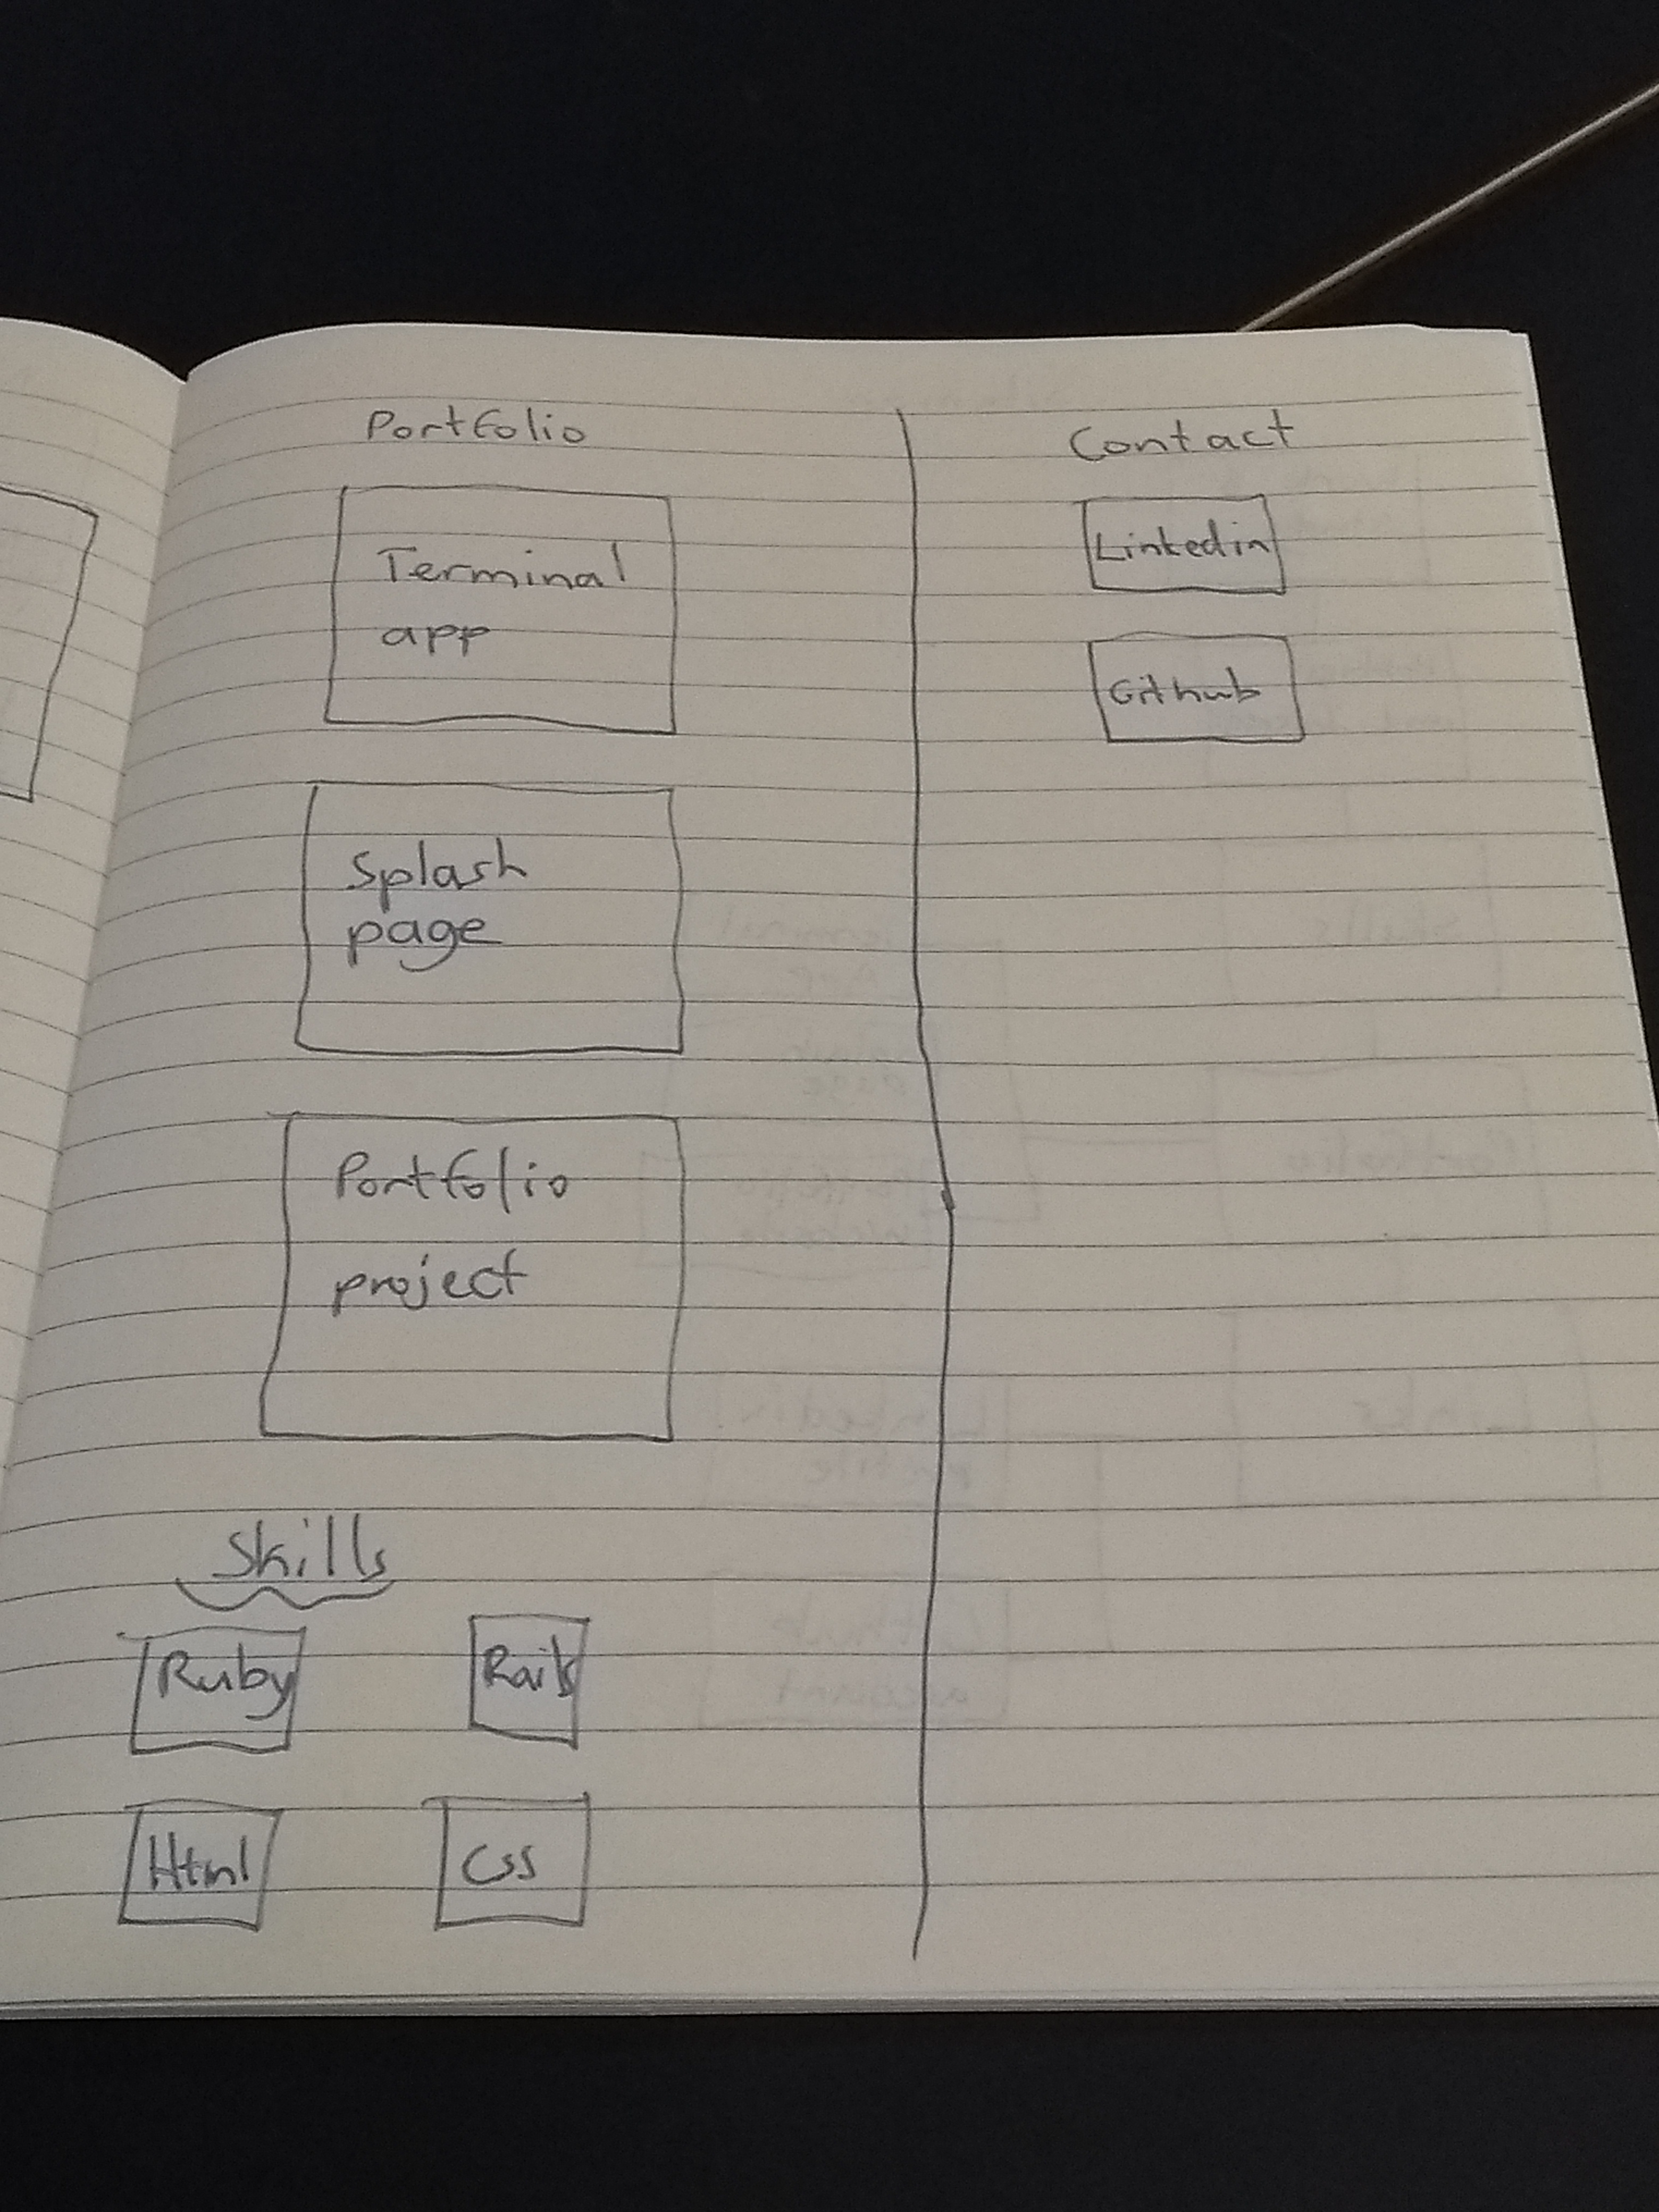 Portfolio
Terminal
app
Splash
page
Portfolio
project
Skills
Ruby
Rails
Html
Css
Contact
Linkedin
Github